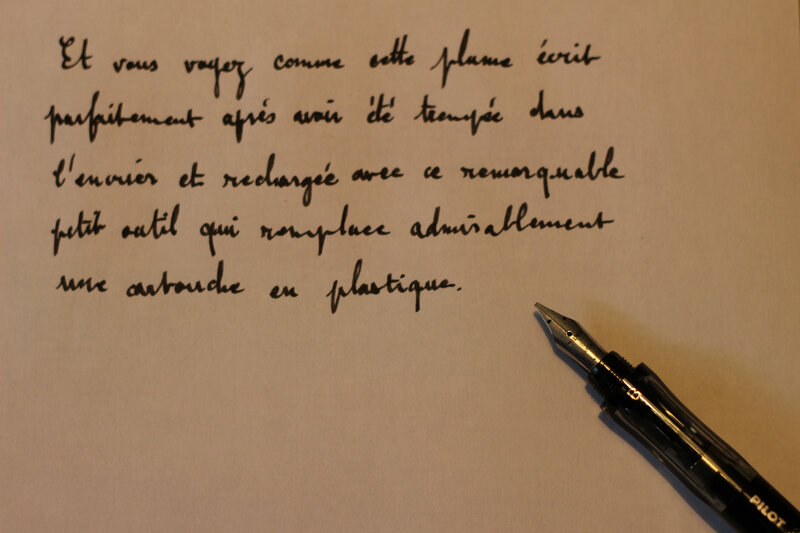 Et vous voyez comme cette plume écrit
parfaitement après avoir été trempée dans
l'encrier et rechargée avec ce remarquable
petit outil qui remplace admirablement
une cartouche en plastique.
B
PILOT